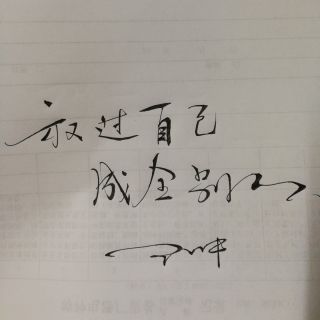 放过自己
成全别人